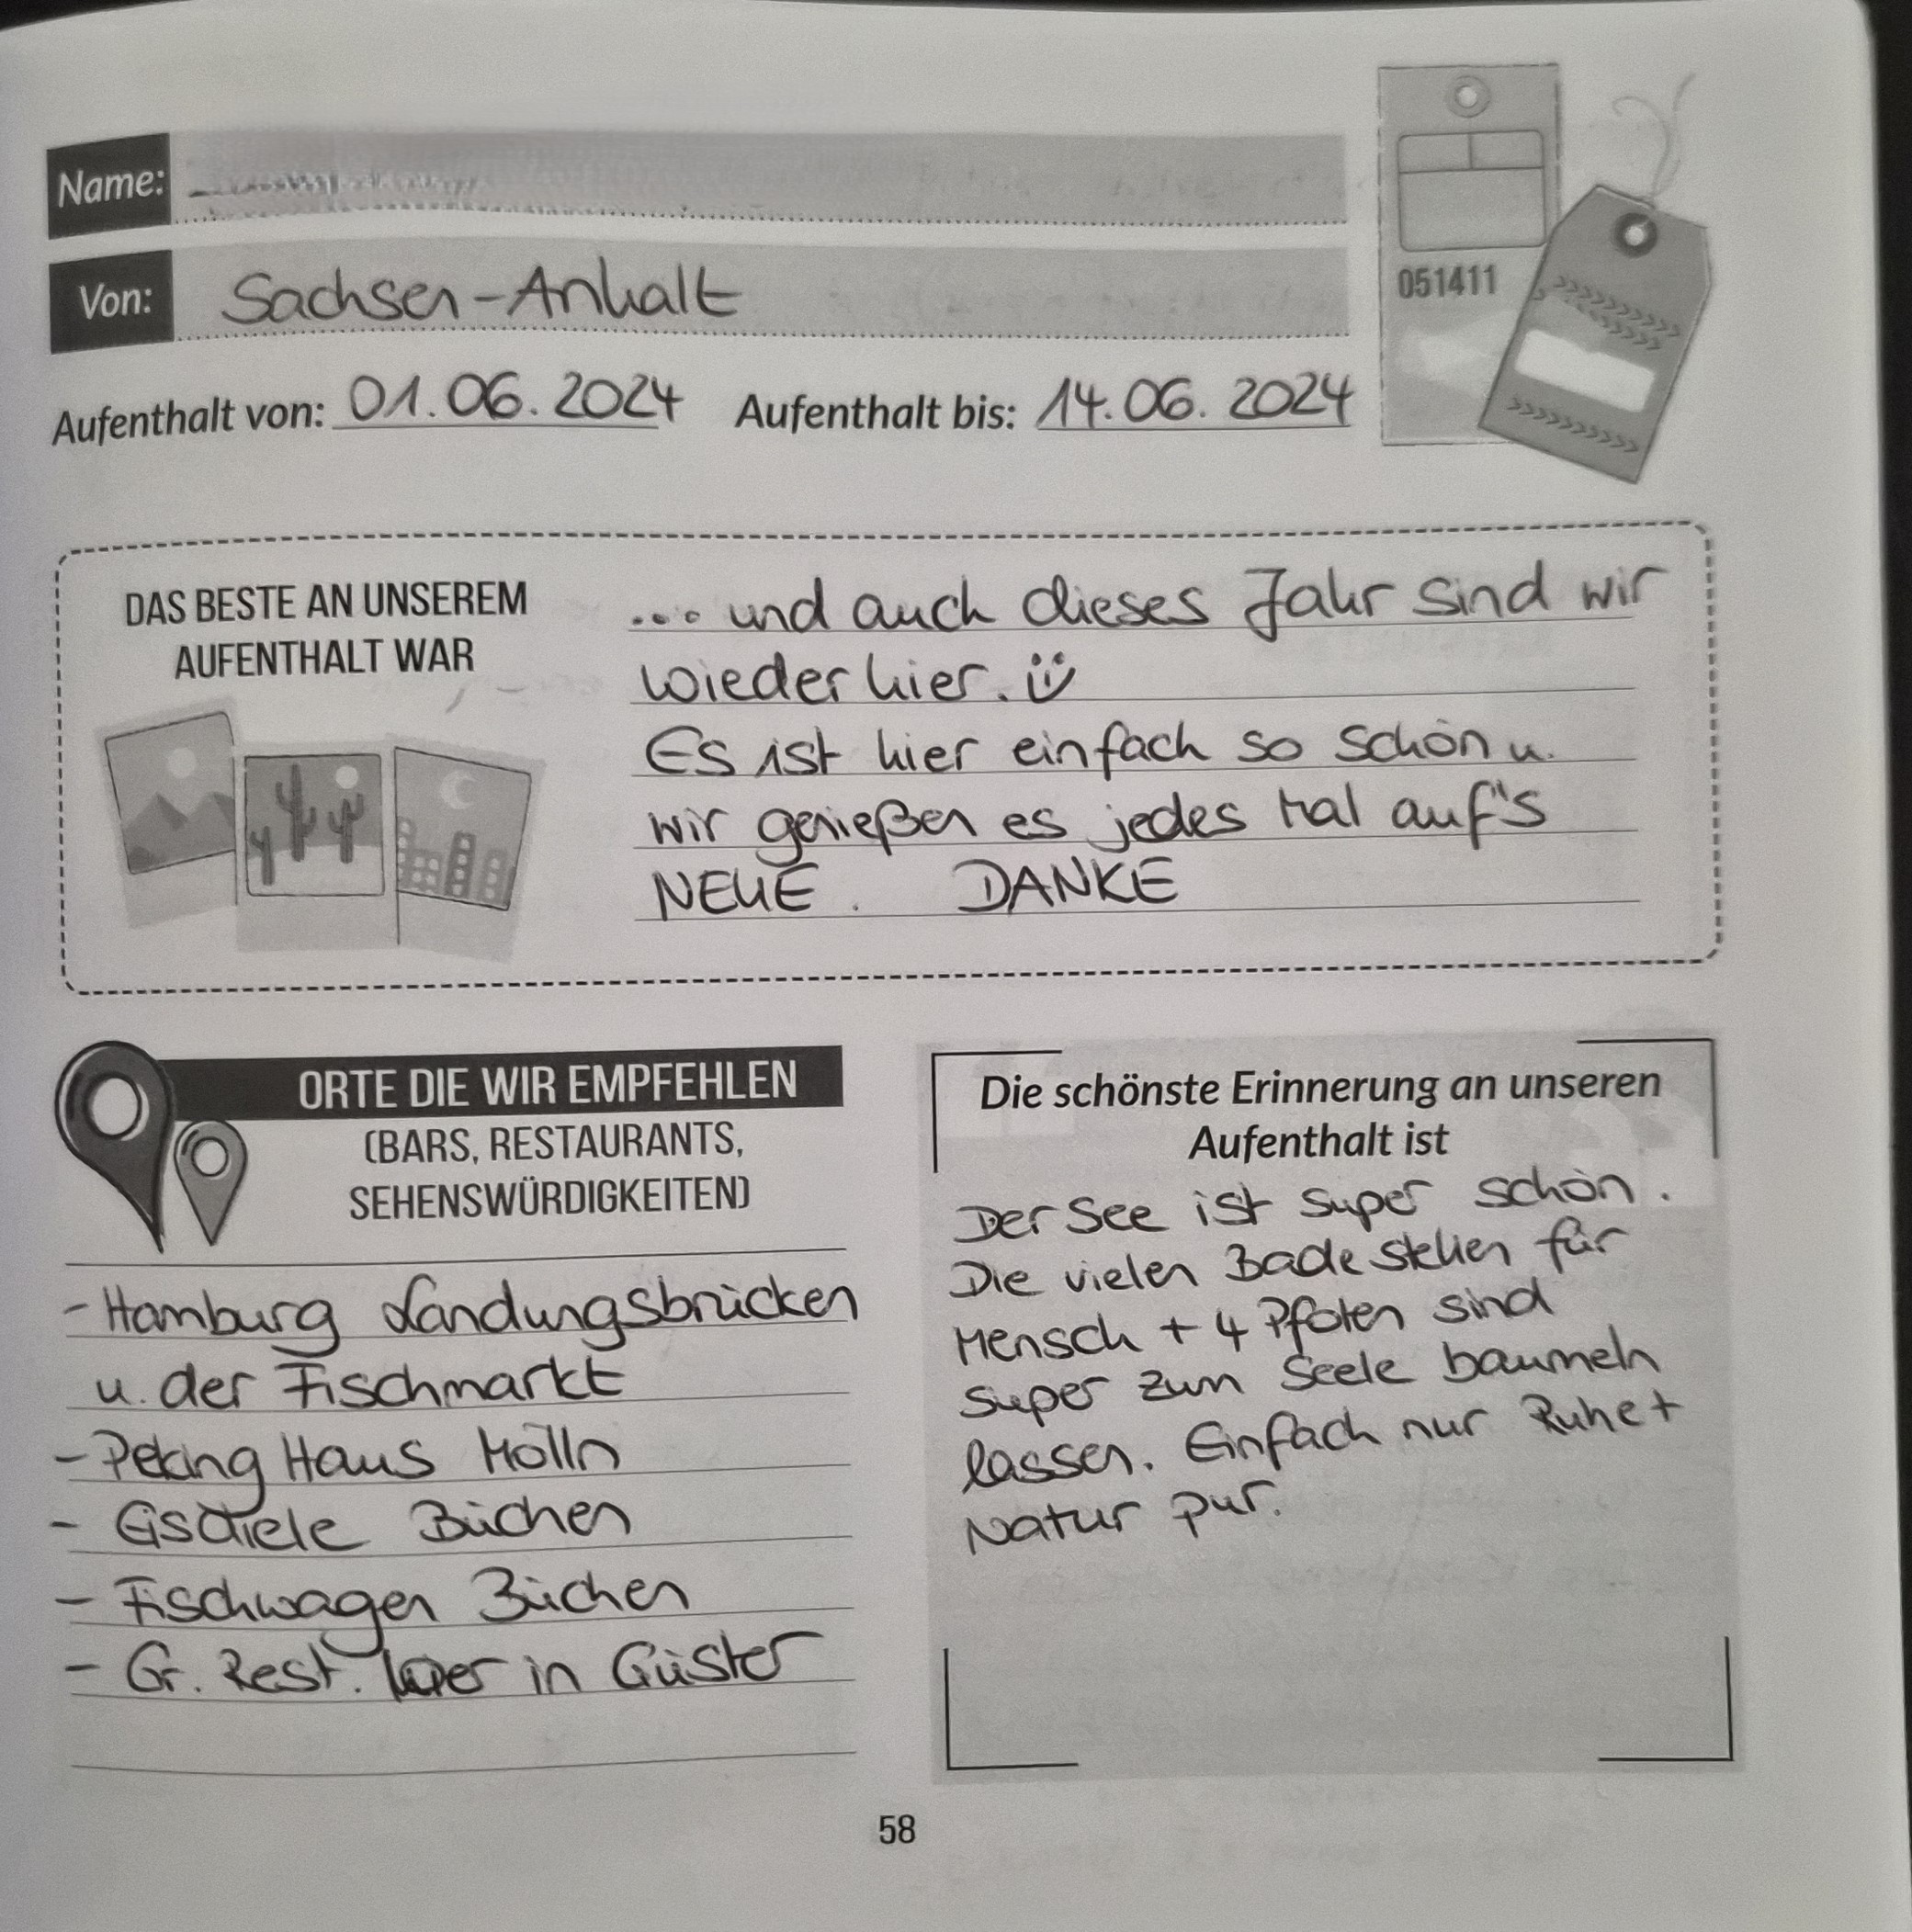 Name:
Von: Sachsen-Anhalt
051411
Aufenthalt von: 01.06.2024 Aufenthalt bis: 14.06.2024
DAS BESTE AN UNSEREM
AUFENTHALT WAR
... und auch dieses Jahr sind wir
wieder hier. ü
Es ist hier einfach so schön u.
wir genießen es jedes Mal auf's
NEUE. DANKE
ORTE DIE WIR EMPFEHLEN
(BARS, RESTAURANTS,
SEHENSWÜRDIGKEITEN)
- Hamburg Landungsbrücken
u. der Fischmarkt
- Peking Haus Mölln
- Eisdiele Büchen
- Fischwagen Büchen
- Gr. Rest. hier in Güster
Die schönste Erinnerung an unseren
Aufenthalt ist
Der See ist super schön.
Die vielen Badestellen für
Mensch + 4 Pfoten sind
super zum Seele baumeln
lassen. Einfach nur Ruhe +
Natur pur.
58